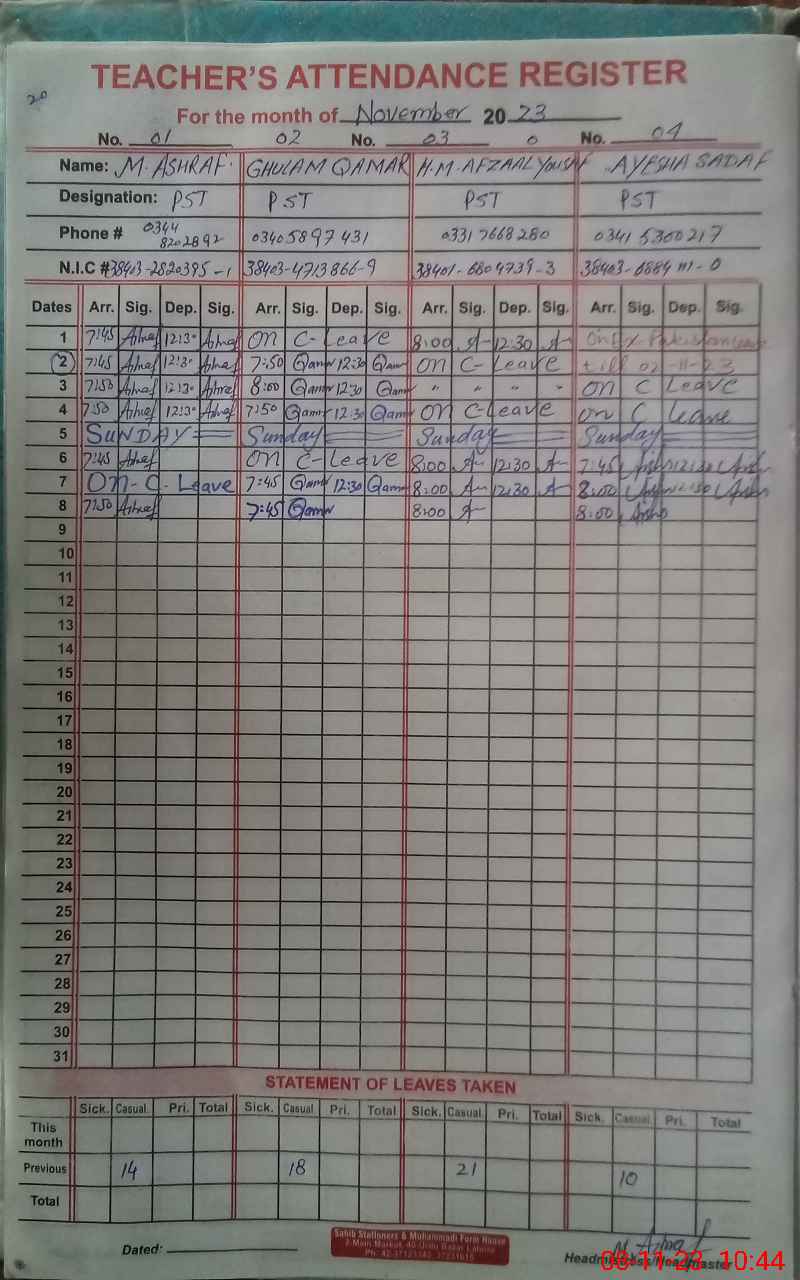 20
TEACHER'S ATTENDANCE REGISTER
For the month of November 2023
No. 01 02 No. 03 0 No. 04
Name: M. ASHRAF. GHULAM QAMAR H.M. AFZAAL YOUSAF AYESHA SADAF
Designation: PST PST PST PST
Phone # 0344 8202892 0340 5897431 0331 7668280 0341 5300217
N.I.C # 38403-2820395-1 38403-4713866-9 38401-6804739-3 38403-6884111-0
Dates Arr. Sig. Dep. Sig. Arr. Sig. Dep. Sig. Arr. Sig. Dep. Sig. Arr. Sig. Dep. Sig.
1 7:45 Ashraf 12:30 Ashraf On C-Leave 8:00 A 12:30 A On Ex-Pakistan Leave
2 7:45 Ashraf 12:30 Ashraf 7:50 Qamar 12:30 Qamar On C-Leave till 02-11-23
3 7:50 Ashraf 12:30 Ashraf 8:00 Qamar 12:30 Qamar " " " " On C Leave
4 7:50 Ashraf 12:30 Ashraf 7:50 Qamar 12:30 Qamar On C-Leave On C Leave
5 SUNDAY Sunday Sunday Sunday
6 7:45 Ashraf On C-Leave 8:00 A 12:30 A 7:45 12:30
7 On-C-Leave 7:45 Qamar 12:30 Qamar 8:00 A 12:30 A 8:00 12:30
8 7:50 Ashraf 7:45 Qamar 8:00 A 8:00
9
10
11
12
13
14
15
16
17
18
19
20
21
22
23
24
25
26
27
28
29
30
31
STATEMENT OF LEAVES TAKEN
Sick. Casual Pri. Total Sick. Casual Pri. Total Sick. Casual Pri. Total Sick. Casual Pri. Total
This month
Previous 14 18 21 10
Total
Sahib Stationers & Muhammadi Form House
2-Main Market, 40-Urdu Bazar Lahore
Dated:
M Ashraf
Headmistress/Headmaster
08-11-23 10:44